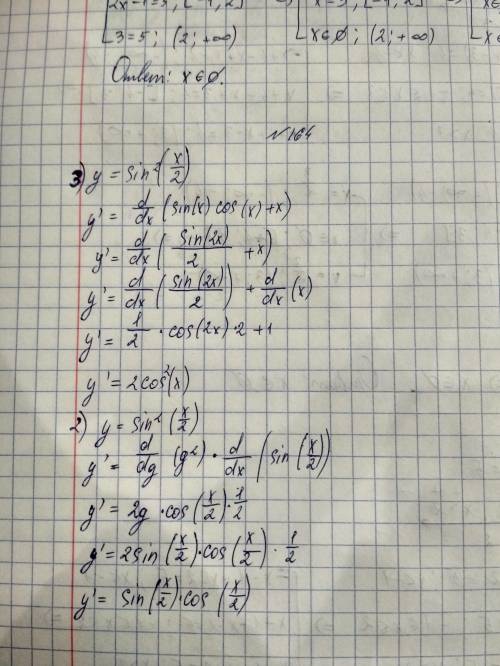 2x-1=5; [-1; 2] ⇒ x=3; [-1; 2] ⇒ x∈
3=5; (2; +∞) x∈∅; (2; +∞) x
Ответ: x∈∅.
№164
3) y = sin²(x/2)
y' = d/dx (sin(x) cos(x) + x)
y' = d/dx (sin(2x)/2 + x)
y' = d/dx (sin(2x)/2) + d/dx (x)
y' = 1/2 · cos(2x) · 2 + 1
y' = 2cos²(x)
2) y = sin² (x/2)
y' = d/dg (g²) · d/dx (sin (x/2))
y' = 2g · cos(x/2) · 1/2
y' = 2sin(x/2) · cos(x/2) · 1/2
y' = sin(x/2) · cos (x/2)